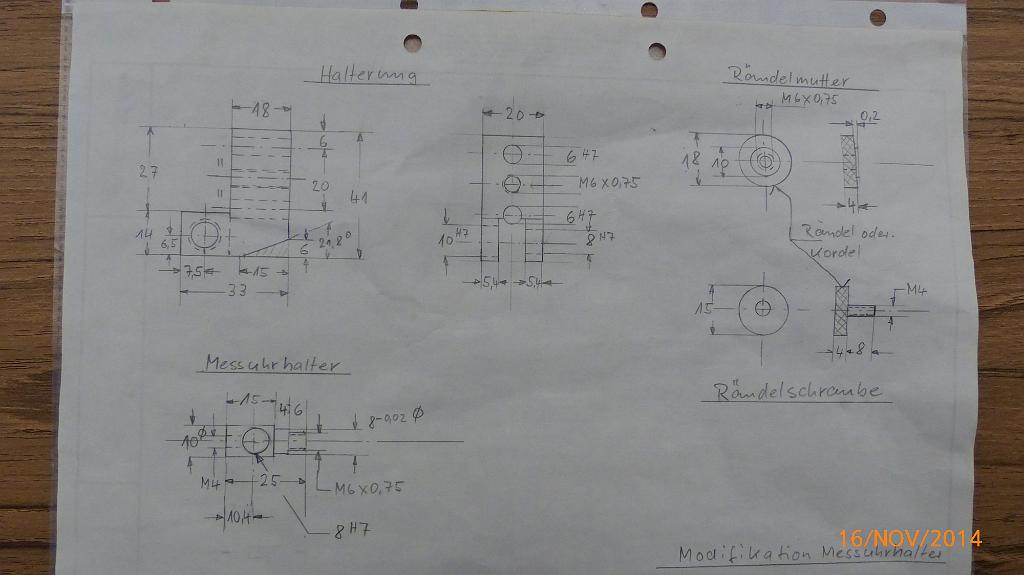 Halterung
18
6
27
20
41
14
6,5
21,8°
6
7,5
15
33
"
"
20
6 H7
M6 x 0,75
6 H7
10 H7
8 H7
5,4
5,4
Rändelmutter
M6 x 0,75
0,2
18
10
4
Rändel oder
Kordel
15
M4
4
8
Rändelschraube
Messuhrhalter
15
4
6
8-0,02 Ø
10 Ø
M4
25
M6 x 0,75
10,4
8 H7
Modifikation Messuhrhalter
16/NOV/2014